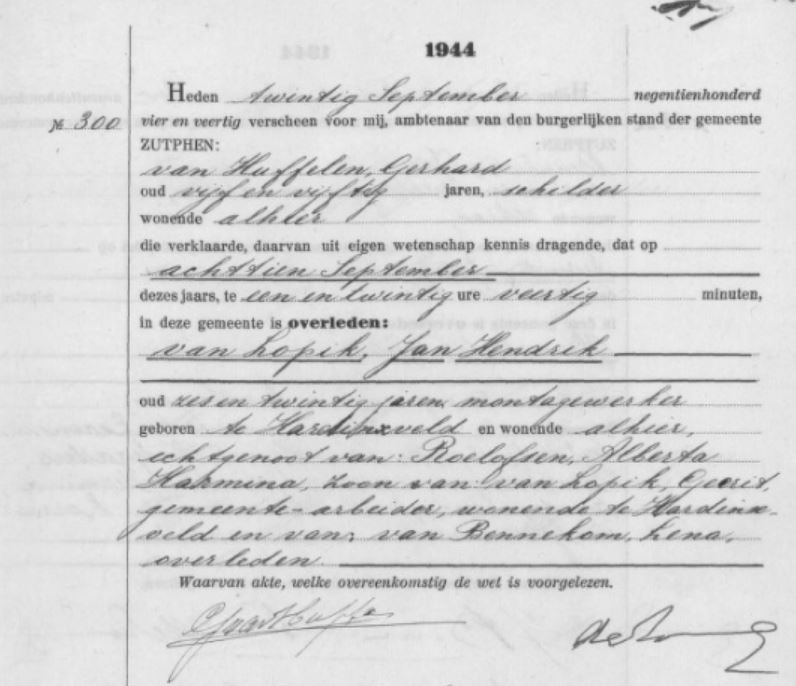 1944
Heden twintig September negentienhonderd
№ 300 vier en veertig verscheen voor mij, ambtenaar van den burgerlijken stand der gemeente
ZUTPHEN:
van Huffelen, Gerhard
oud vijf en vijftig jaren, schilder
wonende alhier
die verklaarde, daarvan uit eigen wetenschap kennis dragende, dat op
achttien September
dezes jaars, te een en twintig ure veertig minuten,
in deze gemeente is overleden:
van Lopik, Jan Hendrik
oud zes en twintig jaren, montagewerker
geboren te Hardinxveld en wonende alhier,
echtgenoot van: Roelofsen, Alberta
Harmina, zoon van: van Lopik, Gerrit,
gemeente-arbeider, wonende te Hardinx-
veld en van: van Bennekom, Lena,
overleden
Waarvan akte, welke overeenkomstig de wet is voorgelezen.